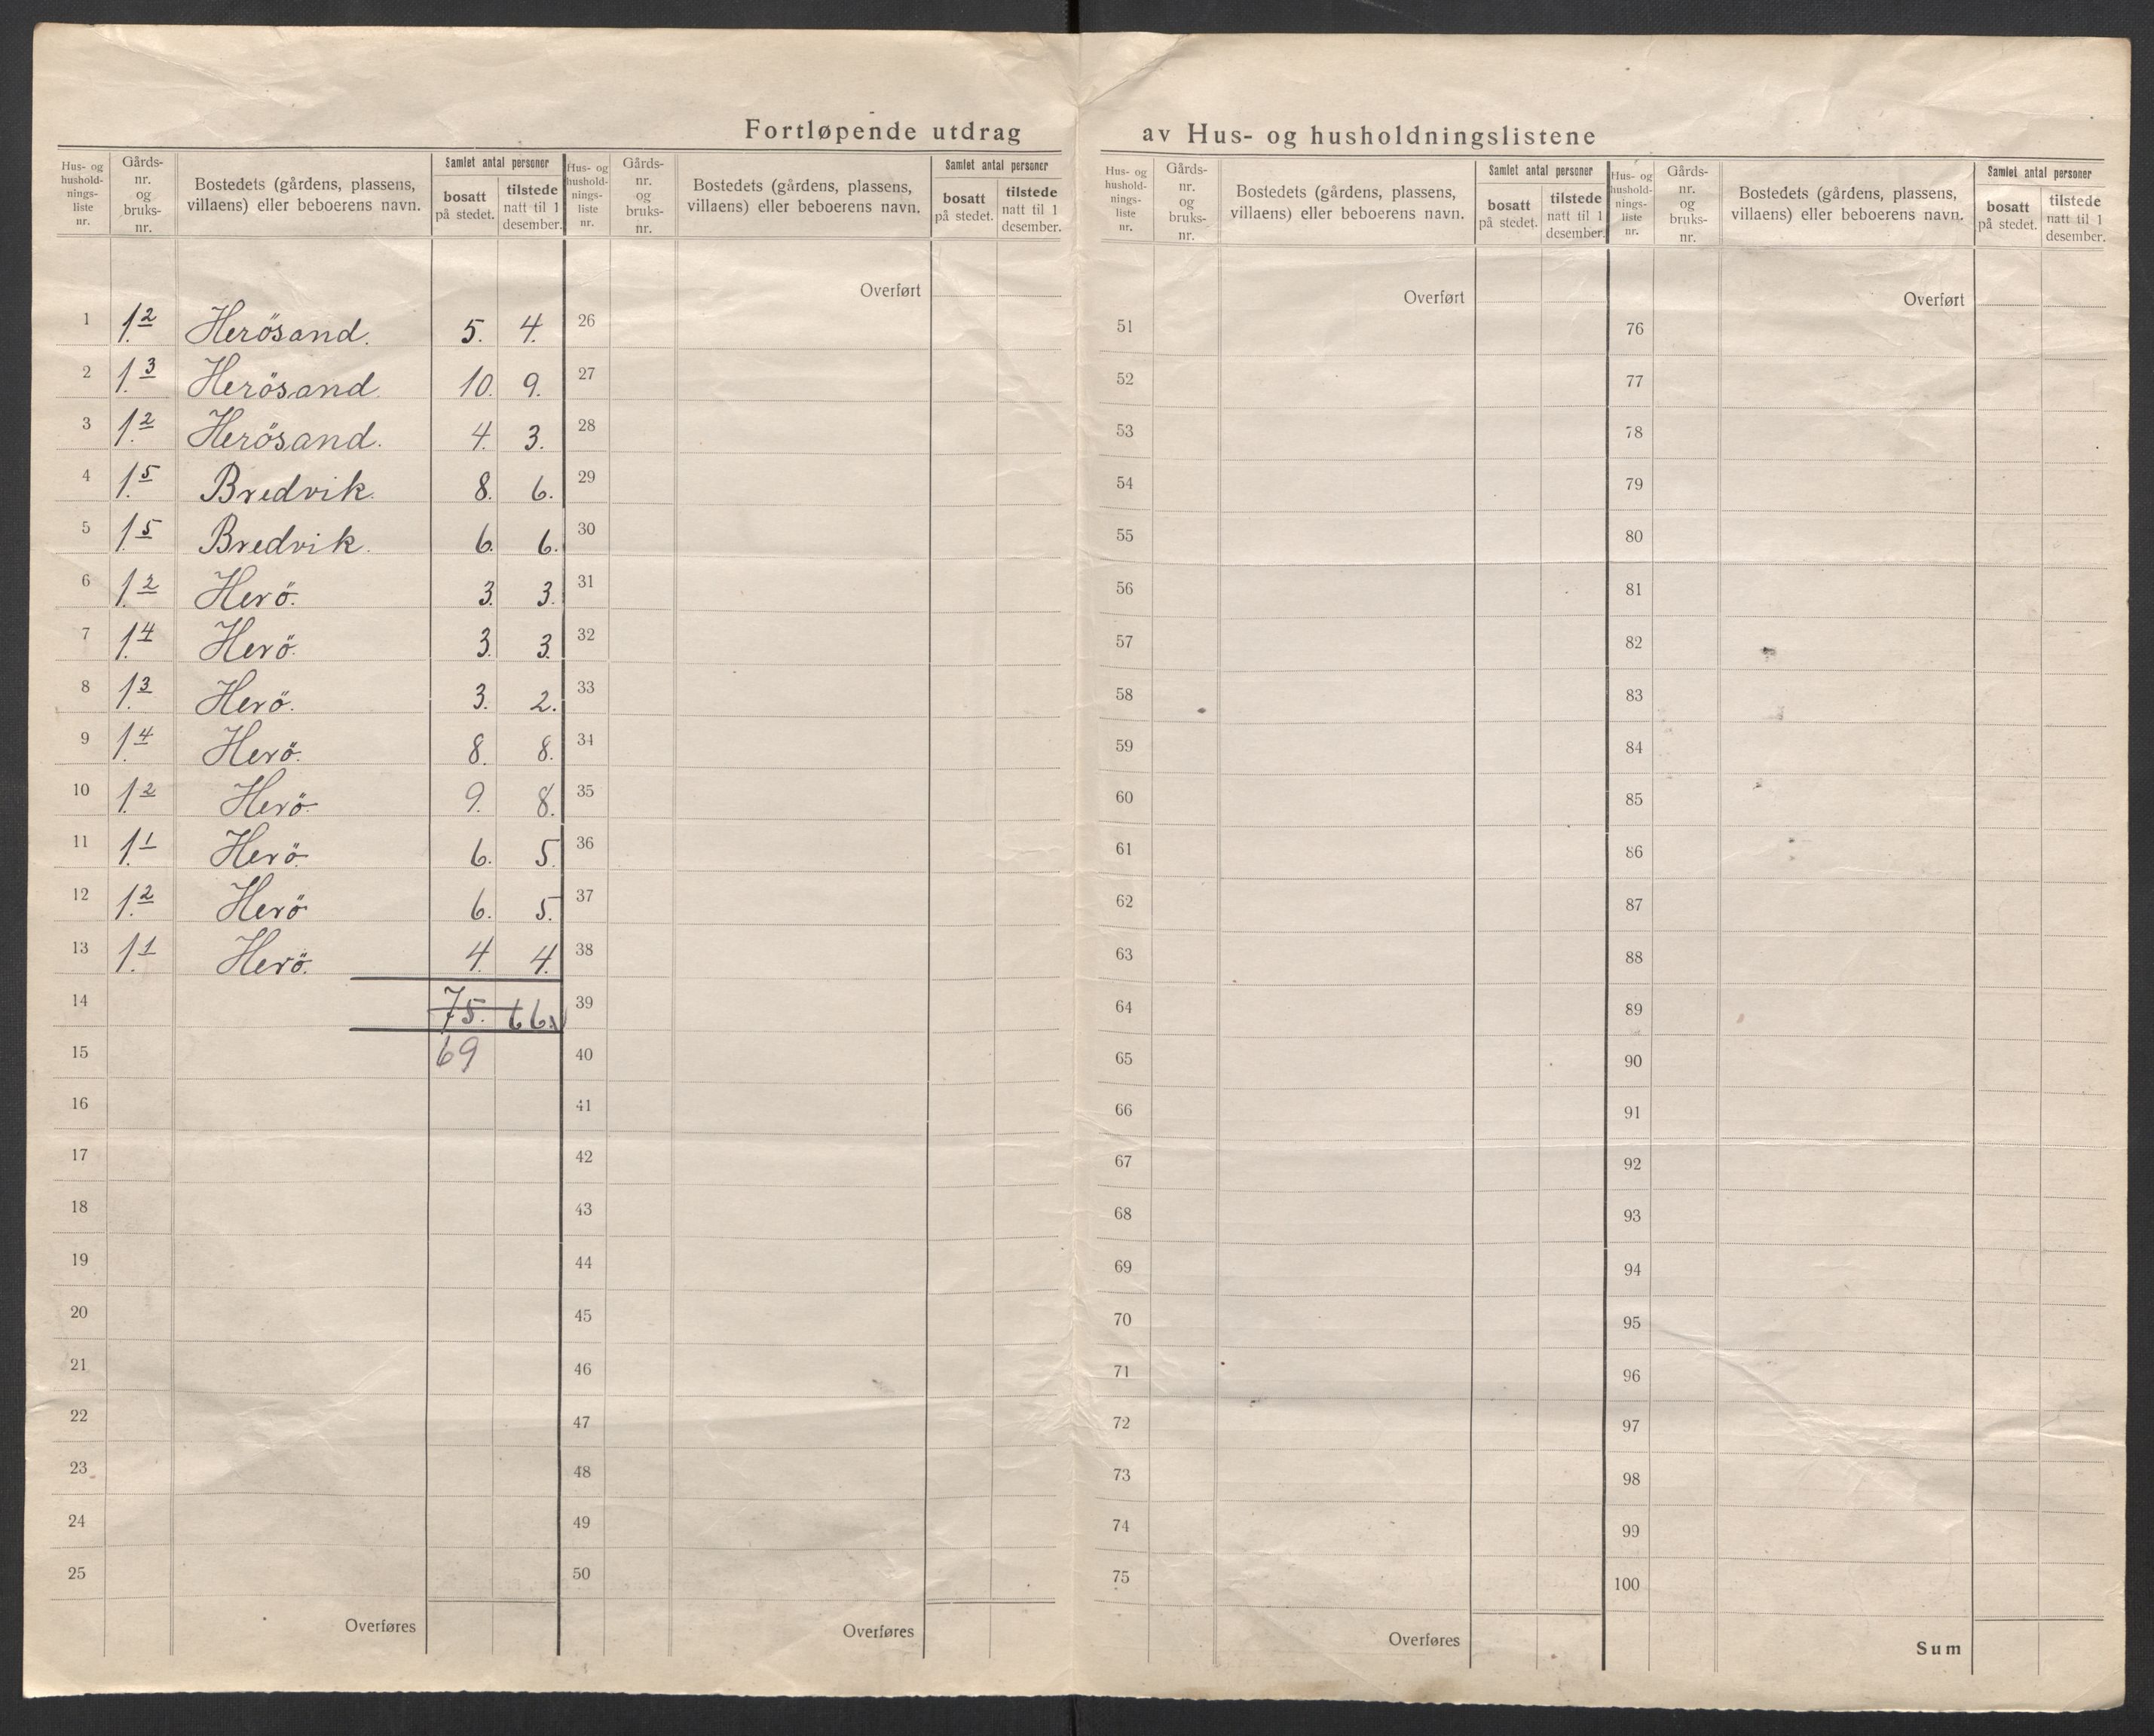 Fortløpende utdrag av Hus- og husholdningslistene
Hus- og hushold-nings-liste nr. Gårds-nr. og bruks-nr. Bostedets (gårdens, plassens, villaens) eller beboerens navn. Samlet antal personer bosatt på stedet. tilstede natt til 1 desember.
Hus- og hushold-nings-liste nr. Gårds-nr. og bruks-nr. Bostedets (gårdens, plassens, villaens) eller beboerens navn. Samlet antal personer bosatt på stedet. tilstede natt til 1 desember.
Hus- og hushold-nings-liste nr. Gårds-nr. og bruks-nr. Bostedets (gårdens, plassens, villaens) eller beboerens navn. Samlet antal personer bosatt på stedet. tilstede natt til 1 desember.
Hus- og hushold-nings-liste nr. Gårds-nr. og bruks-nr. Bostedets (gårdens, plassens, villaens) eller beboerens navn. Samlet antal personer bosatt på stedet. tilstede natt til 1 desember.
Overført Overført Overført
1 1.2 Herösand. 5. 4. 26 51 76
2 1.3 Herösand. 10. 9. 27 52 77
3 1.2 Herösand. 4. 3. 28 53 78
4 1.5 Bredvik. 8. 6. 29 54 79
5 1.5 Bredvik. 6. 6. 30 55 80
6 1.2 Herö. 3. 3. 31 56 81
7 1.4 Herö. 3. 3. 32 57 82
8 1.3 Herö. 3. 2. 33 58 83
9 1.4 Herö. 8. 8. 34 59 84
10 1.2 Herö. 9. 8. 35 60 85
11 1.1 Herö. 6. 5. 36 61 86
12 1.2 Herö 6. 5. 37 62 87
13 1.1 Herö. 4. 4. 38 63 88
14 75. 66. 39 64 89
15 69 40 65 90
16 41 66 91
17 42 67 92
18 43 68 93
19 44 69 94
20 45 70 95
21 46 71 96
22 47 72 97
23 48 73 98
24 49 74 99
25 50 75 100
Overføres Overføres Overføres Sum